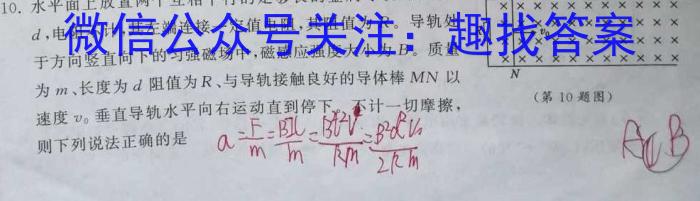 10. 水平面上放置两个互相平行的足够长的金属
d,电 其左端连接一定值电阻,其阻值为R。导轨处
微信公众号关注：趣找答案
于方向竖直向下的匀强磁场中,磁感应强度大小为B。质量
为m、长度为d阻值为R、与导轨接触良好的导体棒MN以
速度v₀垂直导轨水平向右运动直到停下。不计一切摩擦,
则下列说法正确的是
N
(第10题图)
a=F/m=BIL/m=B²L²V/Rm=B²d²V₀/2Rm
B